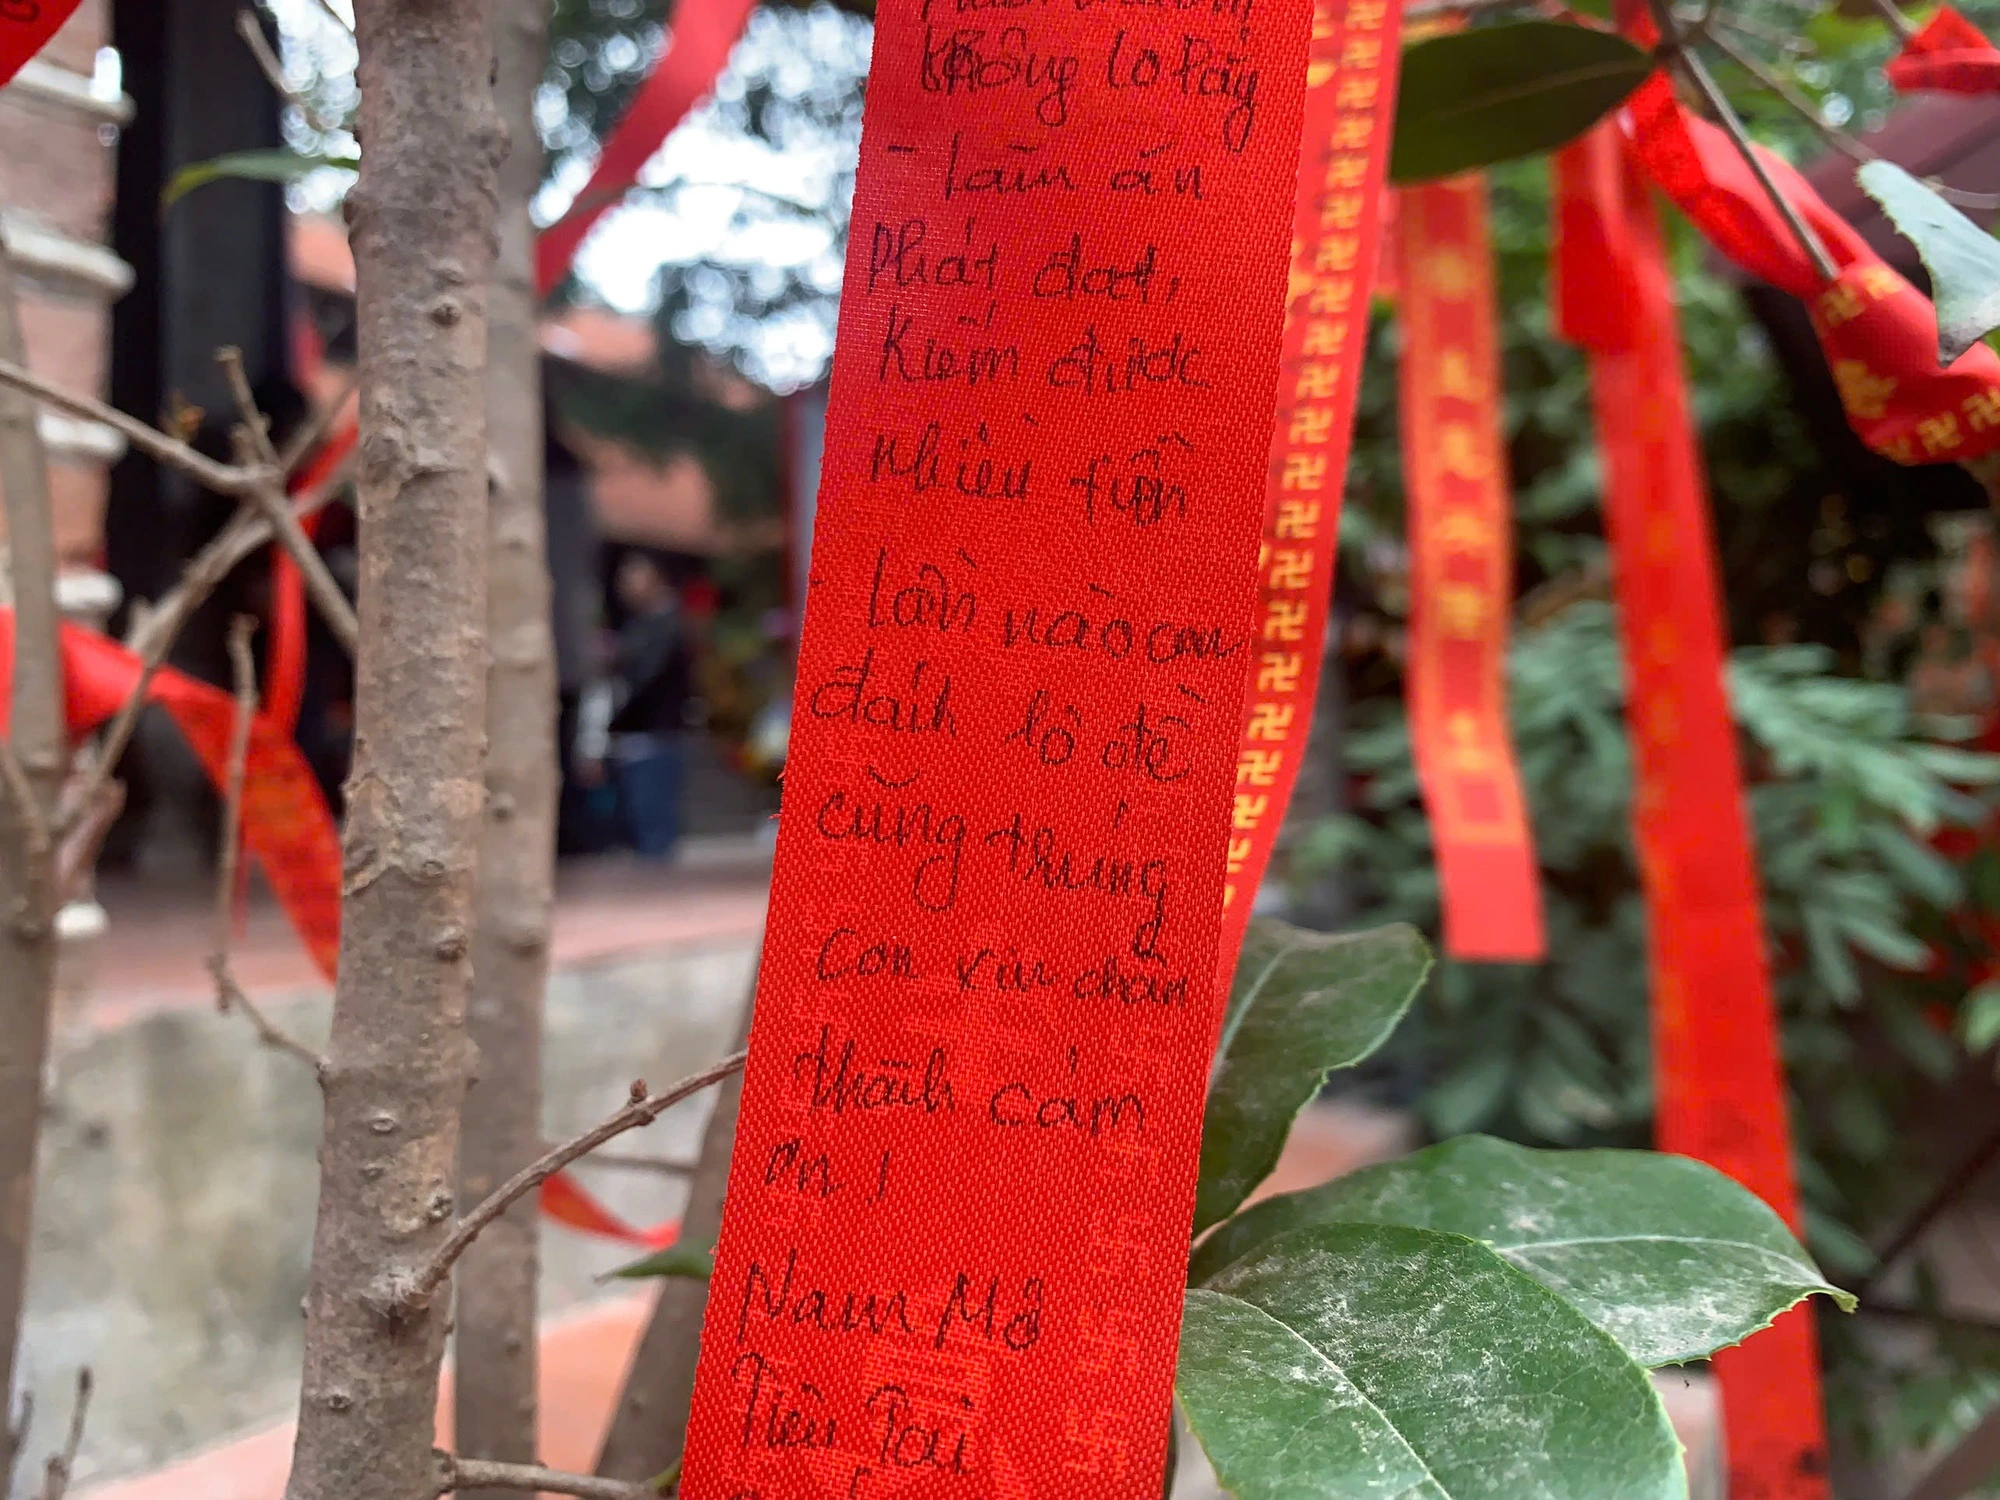 không lo lắng
- làm ăn
phát đạt,
kiếm được
nhiều tiền
lần nào con
đánh lô đề
cũng trúng
con xin chân
thành cảm
ơn !
Nam Mô
Tiêu Tai